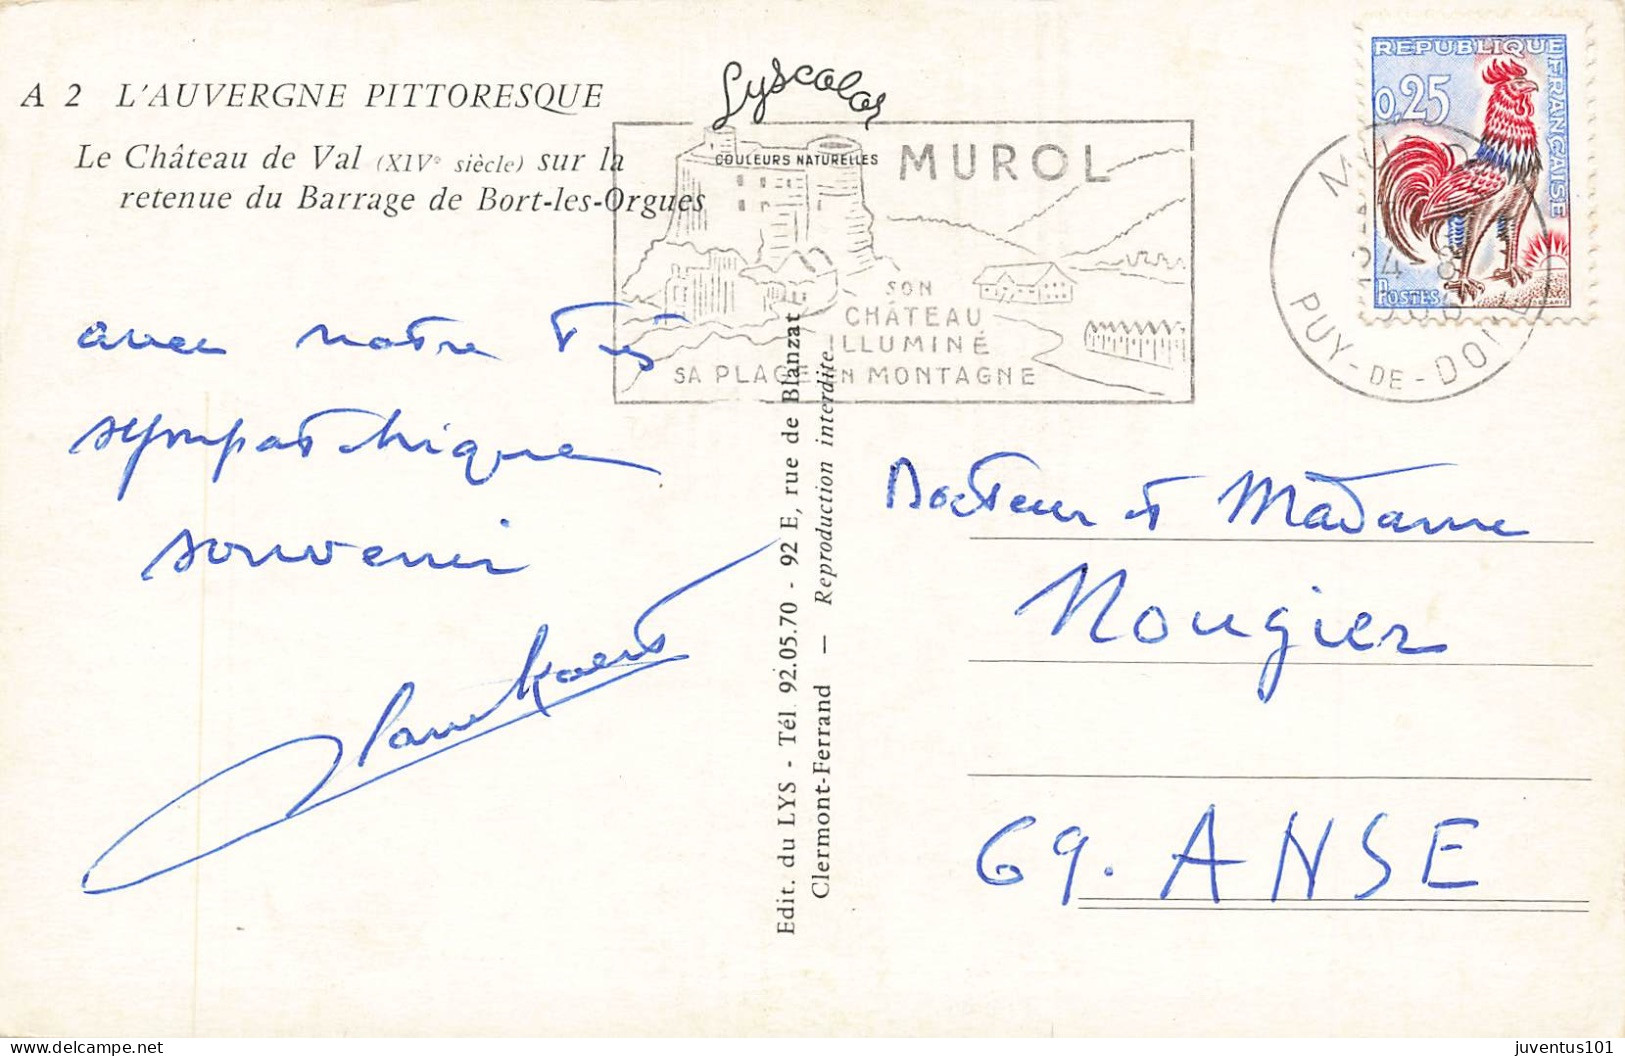 A 2 L'AUVERGNE PITTORESQUE
Le Château de Val (XIVe siècle) sur la
retenue du Barrage de Bort-les-Orgues
Lyscolor
COULEURS NATURELLES
MUROL
SON
CHÂTEAU
ILLUMINÉ
SA PLAGE EN MONTAGNE
REPUBLIQUE FRANÇAISE
0,25
POSTES
PUY-DE-DOME
avec notre très
sympathique
souvenir
Edit. du LYS - Tél. 92.05.70 - 92 E, rue de Blanzat
Clermont-Ferrand — Reproduction interdite
Docteur et Madame
Nougier
69. ANSE
delcampe.net
juventus101